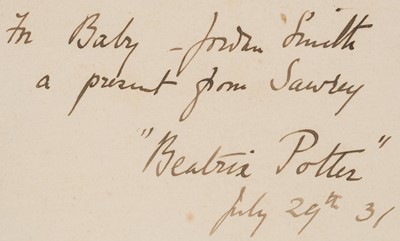 For Baby - Jordan Smith
a present from Sawrey
"Beatrix Potter"
July 29th 31